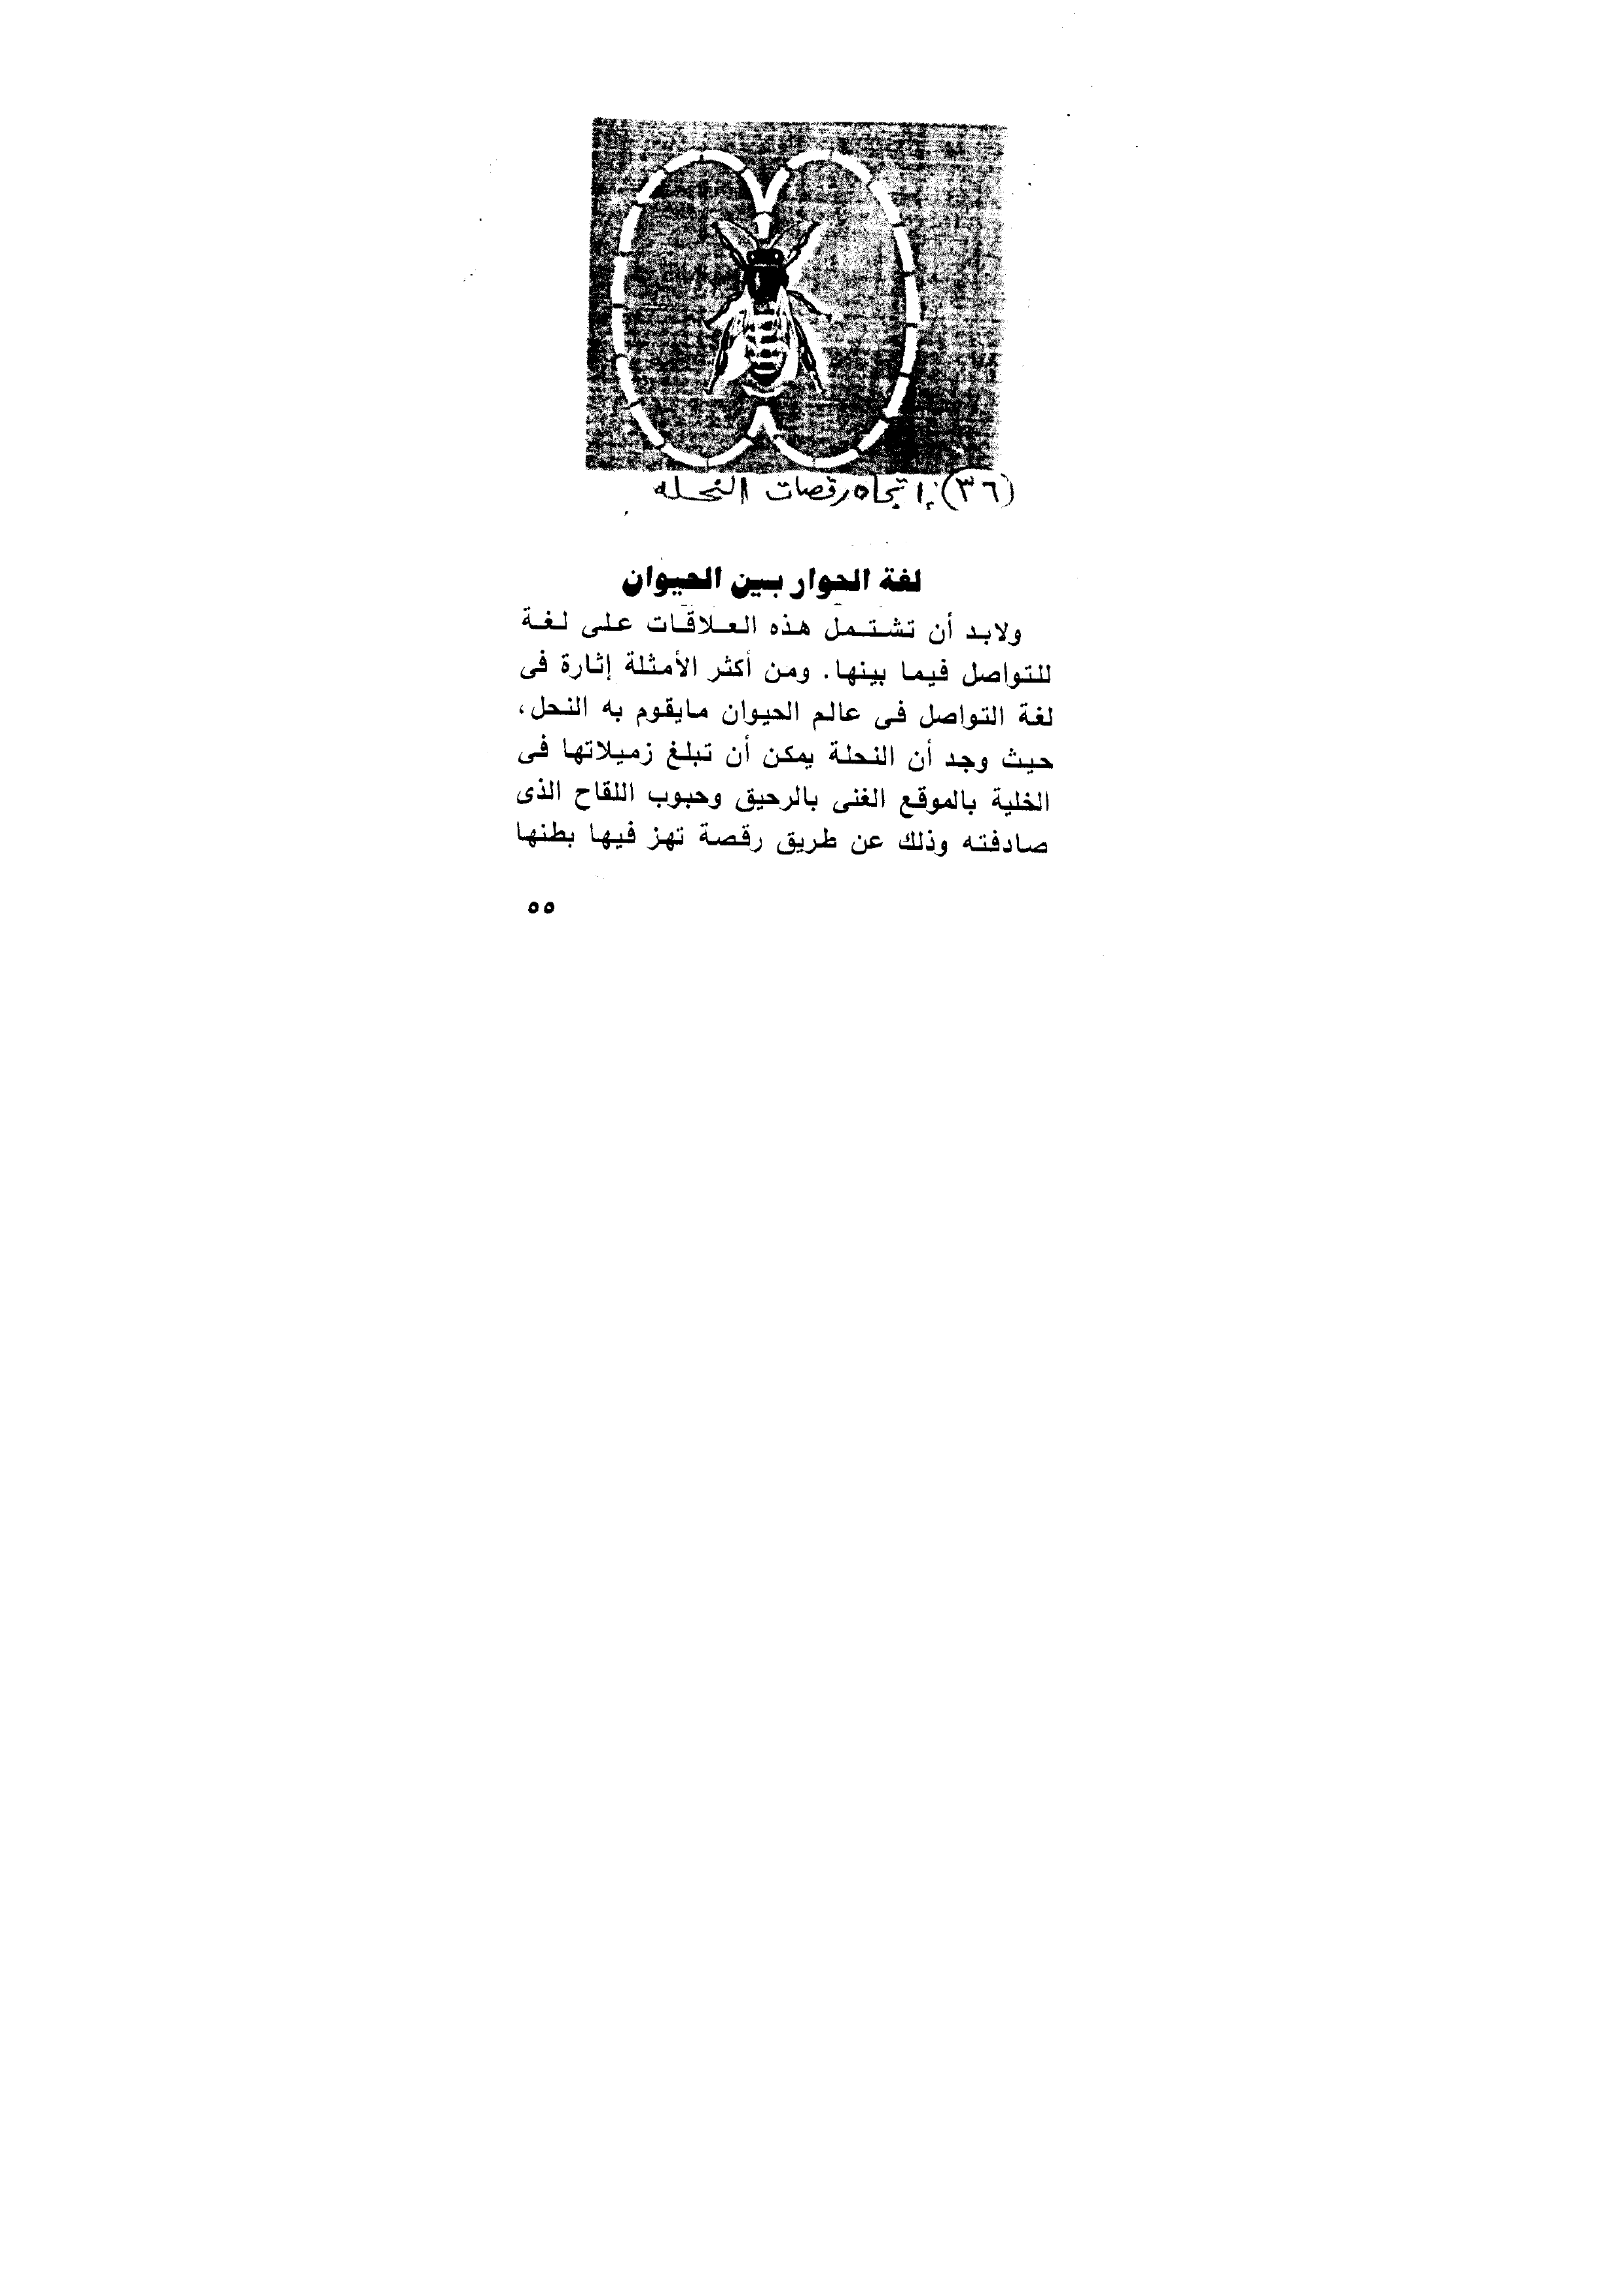 (٣٦) إتجاه رقصات النحله
لغة الحوار بين الحيوان
ولابد أن تشتمل هذه العلاقات على لغة
للتواصل فيما بينها. ومن أكثر الأمثلة إثارة فى
لغة التواصل فى عالم الحيوان مايقوم به النحل،
حيث وجد أن النحلة يمكن أن تبلغ زميلاتها فى
الخلية بالموقع الغنى بالرحيق وحبوب اللقاح الذى
صادفته وذلك عن طريق رقصة تهز فيها بطنها
٥٥